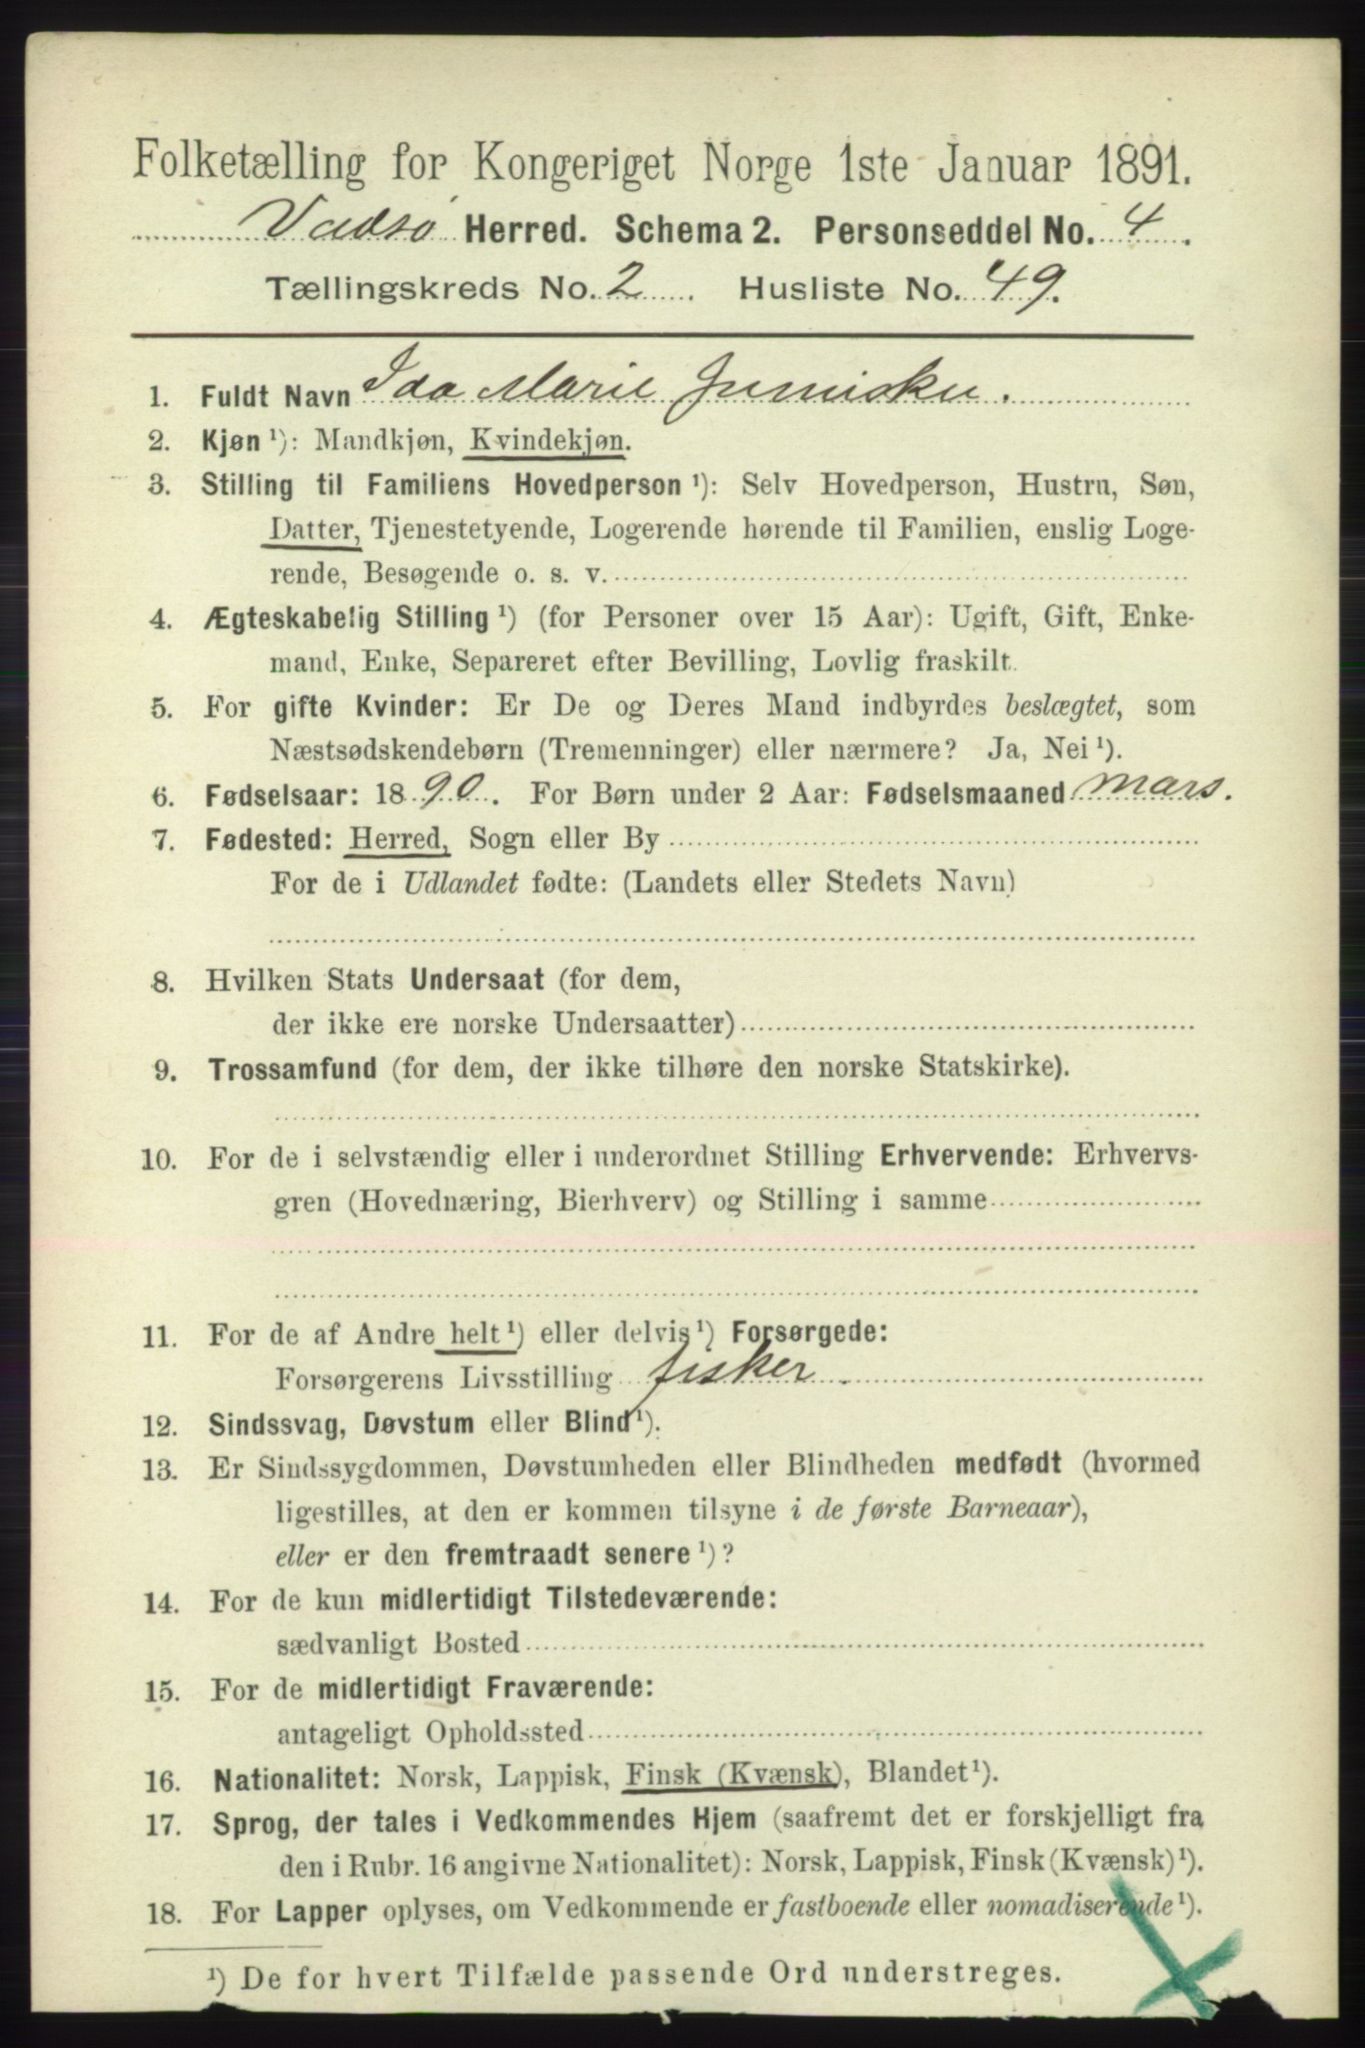 Folketælling for Kongeriget Norge 1ste Januar 1891.
Vadsø Herred. Schema 2. Personseddel No. 4.
Tællingskreds No. 2 Husliste No. 49.
1. Fuldt Navn Ida Marie
2. Kjøn ¹): Mandkjøn, Kvindekjøn.
3. Stilling til Familiens Hovedperson ¹): Selv Hovedperson, Hustru, Søn,
Datter, Tjenestetyende, Logerende hørende til Familien, enslig Loge-
rende, Besøgende o. s. v.
4. Ægteskabelig Stilling ¹) (for Personer over 15 Aar): Ugift, Gift, Enke-
mand, Enke, Separeret efter Bevilling, Lovlig fraskilt.
5. For gifte Kvinder: Er De og Deres Mand indbyrdes beslægtet, som
Næstsødskendebørn (Tremenninger) eller nærmere? Ja, Nei ¹).
6. Fødselsaar: 1890. For Børn under 2 Aar: Fødselsmaaned mars.
7. Fødested: Herred, Sogn eller By
For de i Udlandet fødte: (Landets eller Stedets Navn)
8. Hvilken Stats Undersaat (for dem,
der ikke ere norske Undersaatter)
9. Trossamfund (for dem, der ikke tilhøre den norske Statskirke).
10. For de i selvstændig eller i underordnet Stilling Erhvervende: Erhvervs-
gren (Hovednæring, Bierhverv) og Stilling i samme
11. For de af Andre helt ¹) eller delvis ¹) Forsørgede:
Forsørgerens Livsstilling fisker.
12. Sindssvag, Døvstum eller Blind ¹).
13. Er Sindssygdommen, Døvstumheden eller Blindheden medfødt (hvormed
ligestilles, at den er kommen tilsyne i de første Barneaar),
eller er den fremtraadt senere ¹)?
14. For de kun midlertidigt Tilstedeværende:
sædvanligt Bosted
15. For de midlertidigt Fraværende:
antageligt Opholdssted
16. Nationalitet: Norsk, Lappisk, Finsk (Kvænsk), Blandet ¹).
17. Sprog, der tales i Vedkommendes Hjem (saafremt det er forskjelligt fra
den i Rubr. 16 angivne Nationalitet): Norsk, Lappisk, Finsk (Kvænsk) ¹).
18. For Lapper oplyses, om Vedkommende er fastboende eller nomadiserende ¹).
¹) De for hvert Tilfælde passende Ord understreges.